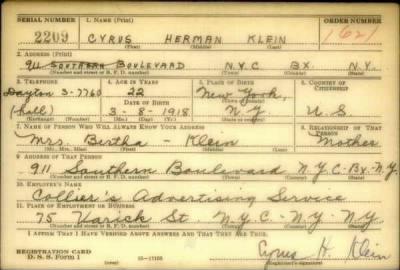 SERIAL NUMBER 1. NAME (Print) ORDER NUMBER
2209 CYRUS HERMAN KLEIN 1621
(First) (Middle) (Last)
2. ADDRESS (Print)
911 SOUTHERN BOULEVARD N.Y.C BX. N.Y.
(Number and street or R. F. D. number) (Town) (County) (State)
3. TELEPHONE 4. AGE IN YEARS 5. PLACE OF BIRTH 6. COUNTRY OF CITIZENSHIP
Dayton 3-7760 22 New York,
DATE OF BIRTH (Town or county)
(hall) 3-8-1918 N.Y. U.S
(Exchange) (Number) (Mo.) (Day) (Yr.) (State or country)
7. NAME OF PERSON WHO WILL ALWAYS KNOW YOUR ADDRESS 8. RELATIONSHIP OF THAT PERSON
Mrs. Bertha - Klein Mother
(Mr., Mrs., Miss) (First) (Middle) (Last)
9. ADDRESS OF THAT PERSON
911 Southern Boulevard N.Y.C-Bx-N.Y.
(Number and street or R. F. D. number) (Town) (County) (State)
10. EMPLOYER'S NAME
Collier's Advertising Service
11. PLACE OF EMPLOYMENT OR BUSINESS
75 Varick St. N.Y.C.-N.Y-N.Y
(Number and street or R. F. D. number) (Town) (County) (State)
I AFFIRM THAT I HAVE VERIFIED ABOVE ANSWERS AND THAT THEY ARE TRUE.
REGISTRATION CARD Cyrus H. Klein
D. S. S. Form 1 (Registrant's signature)